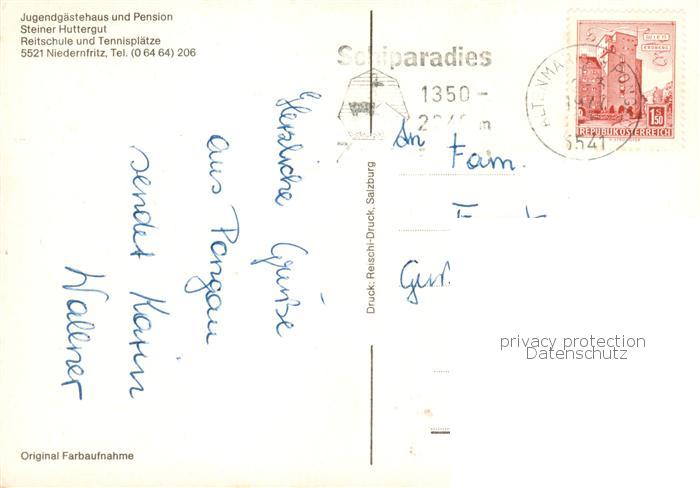 Jugendgästehaus und Pension
Steiner Huttergut
Reitschule und Tennisplätze
5521 Niedernfritz, Tel. (0 64 64) 206
Herzliche Grüße
aus Pongau
sendet Karin
Wallner
Original Farbaufnahme
Druck: Reischl-Druck, Salzburg
Schiparadies
1350 –
m
5541
1.50
REPUBLIK ÖSTERREICH
An
Fam.
privacy protection
Datenschutz